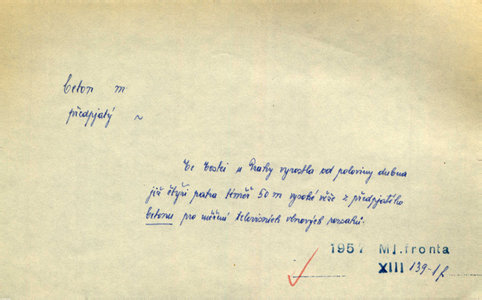 beton m
předpjatý ~
Ve            u Prahy vyrostla od poloviny dubna
již čtyři patra téměř 50 m vysoké věže z předpjatého
betonu pro měření televisních vlnových rozsahů.
1957 Ml.fronta
XIII 139-1f